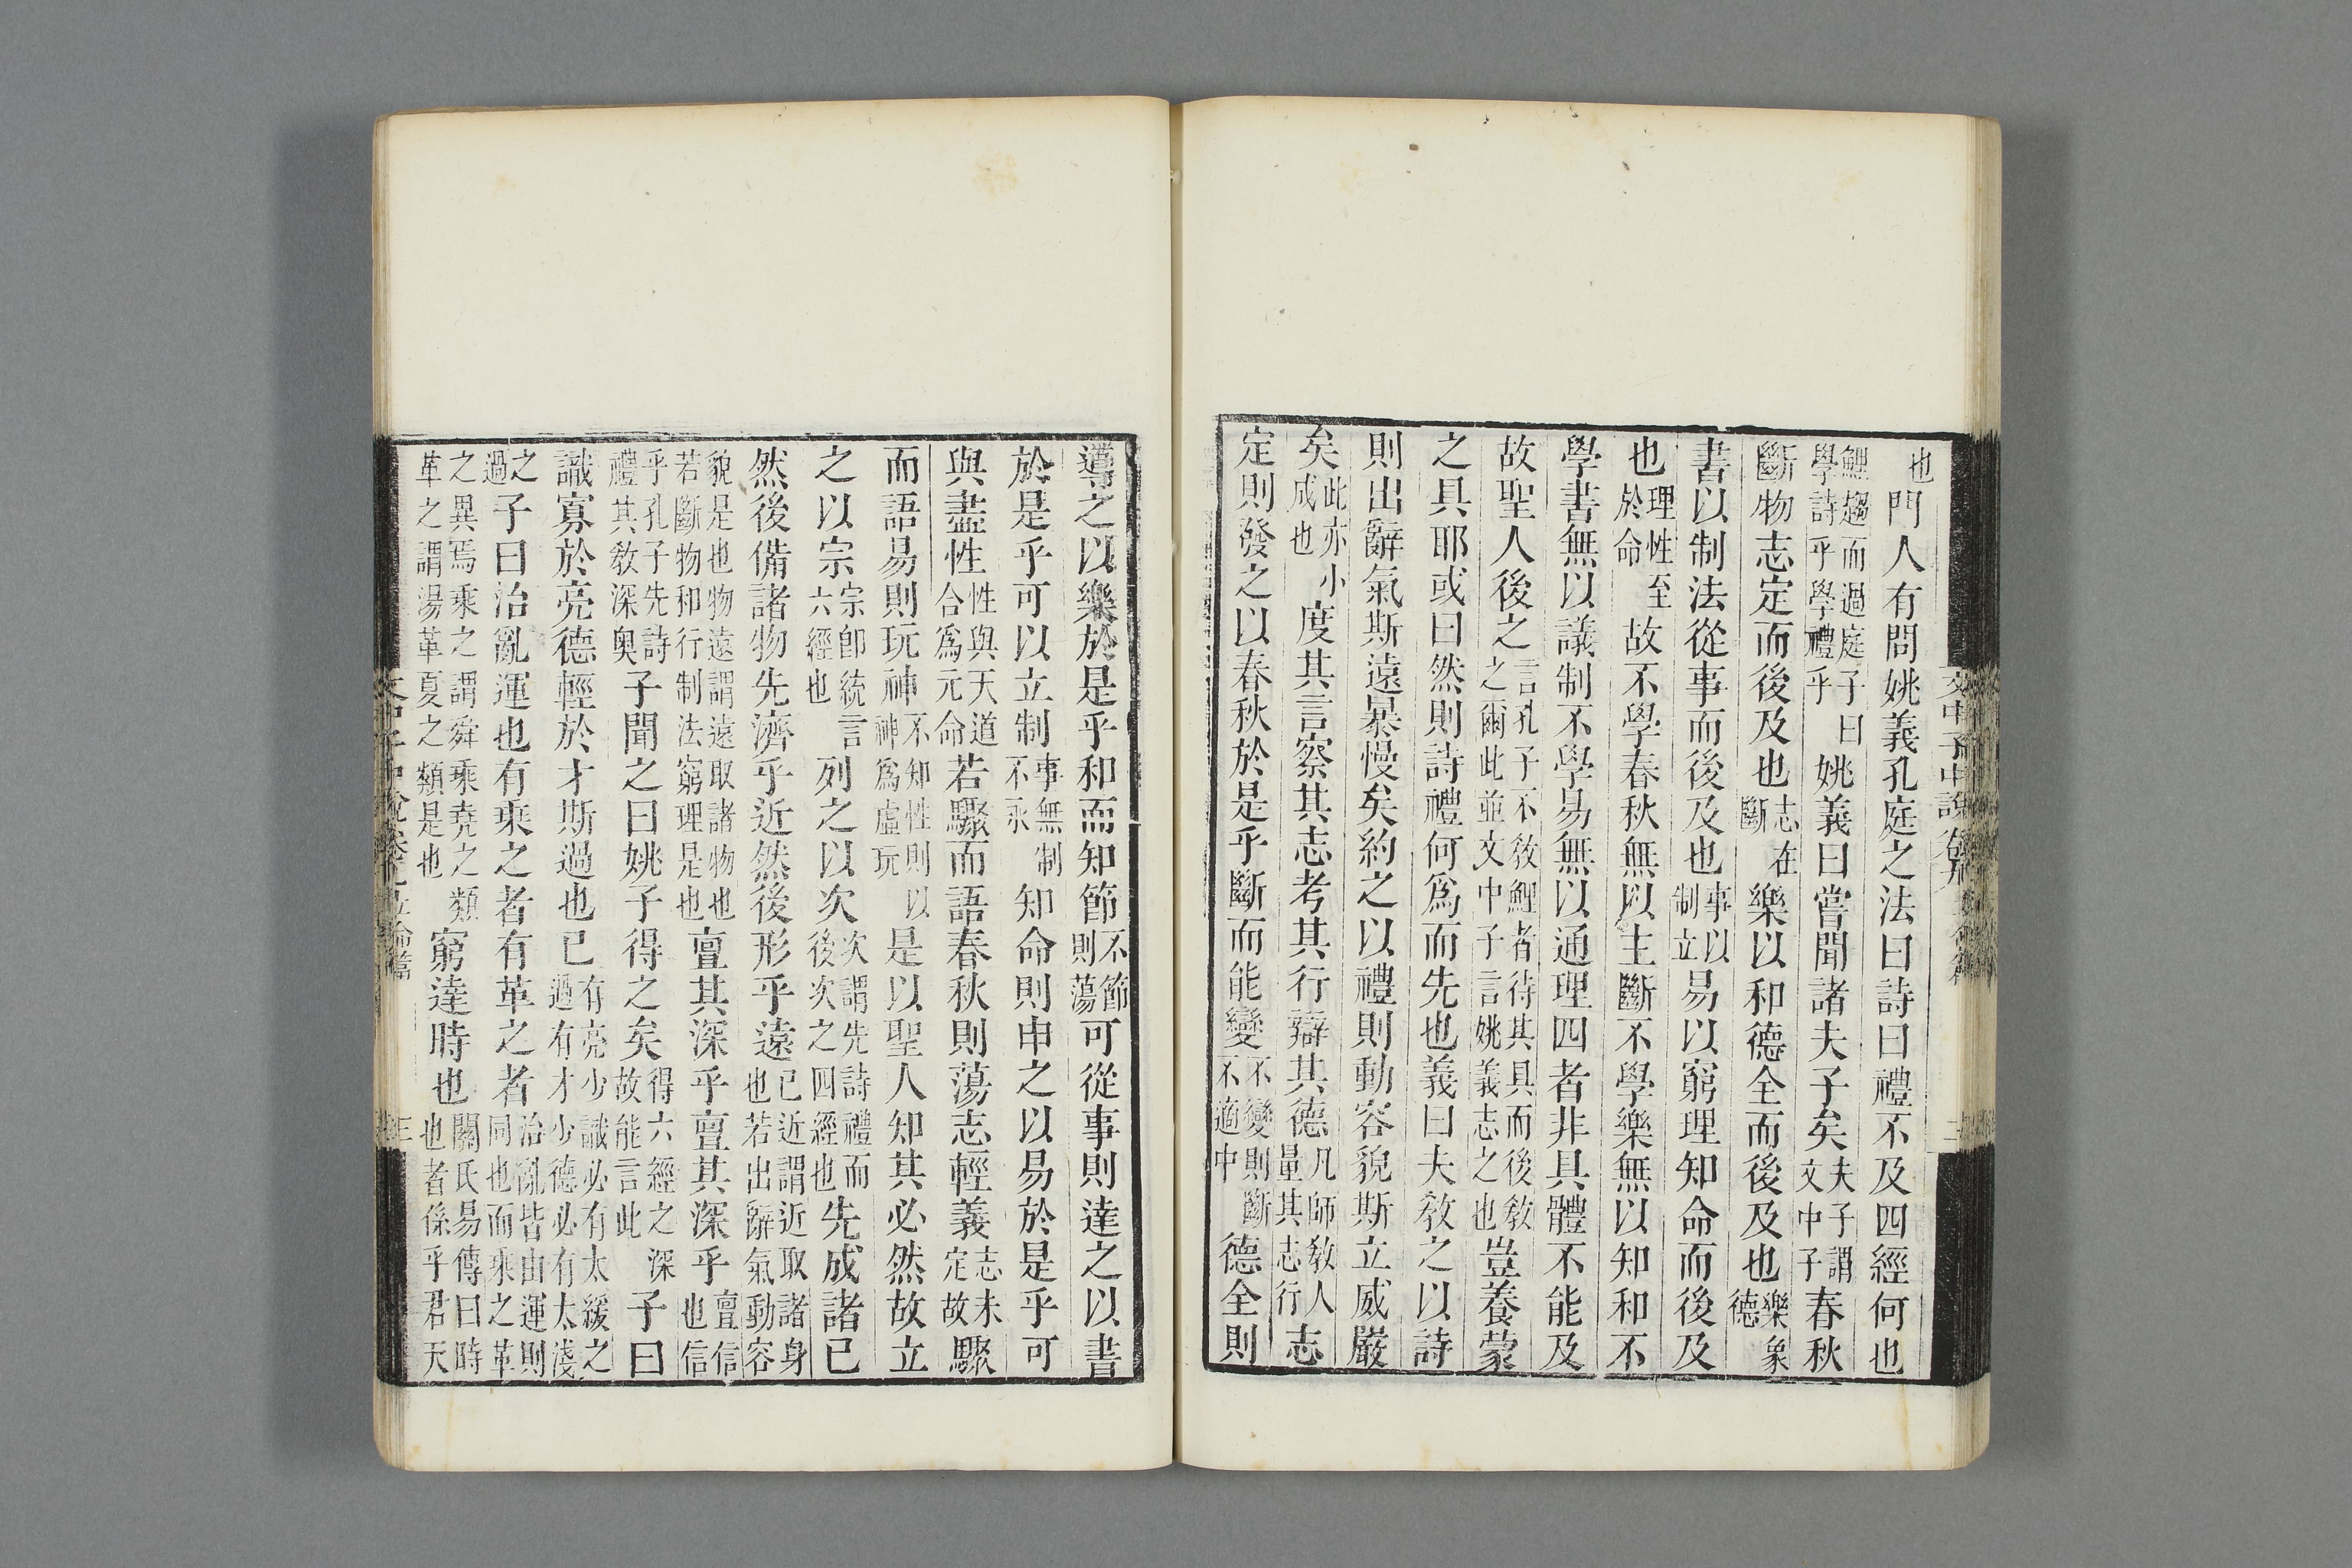 也門人有問姚義孔庭之法曰詩曰禮不及四經何也
鯉趨而過庭子曰學詩乎學禮乎姚義曰嘗聞諸夫子矣夫子謂文中子春秋
斷物志定而後及也志在斷樂以和德全而後及也樂象德
書以制法從事而後及也事以制立易以窮理知命而後及
也理性至於命故不學春秋無以主斷不學樂無以知和不
學書無以議制不學易無以通理四者非具體不能及
故聖人後之言孔子不教鯉者待其具而後教之爾此並文中子言姚義志之也豈養蒙
之具耶或曰然則詩禮何爲而先也義曰夫教之以詩
則出辭氣斯遠暴慢矣約之以禮則動容貌斯立威嚴
矣此亦小成也度其言察其志考其行辯其德凡師教人量其志行志
定則發之以春秋於是乎斷而能變不變則斷不適中德全則
導之以樂於是乎和而知節不節則蕩可從事則達之以書
於是乎可以立制事無制不永知命則申之以易於是乎可
與盡性性與天道合爲元命若驟而語春秋則蕩志輕義志未定故驟
而語易則玩神不知性則以神爲虛玩是以聖人知其必然故立
之以宗宗卽統言六經也列之以次次謂先詩禮而後次之四經也先成諸已
然後備諸物先濟乎近然後形乎遠已近謂近取諸身也若出辭氣動容
貌是也物遠謂遠取諸物也若斷物和行制法窮理是也亶其深乎亶其深乎亶信也信
乎孔子先詩禮其教深奥子聞之曰姚子得之矣得六經之深故能言此子曰
識寡於亮德輕於才斯過也已有亮少識必有太緩之過有才少德必有太淺
之過子曰治亂運也有乘之者有革之者治亂皆由運則同也而乘之革
之異焉乘之謂舜乘堯之類革之謂湯革夏之類是也窮達時也關氏易傳曰時也者係乎君天
文中子中說卷
二
三